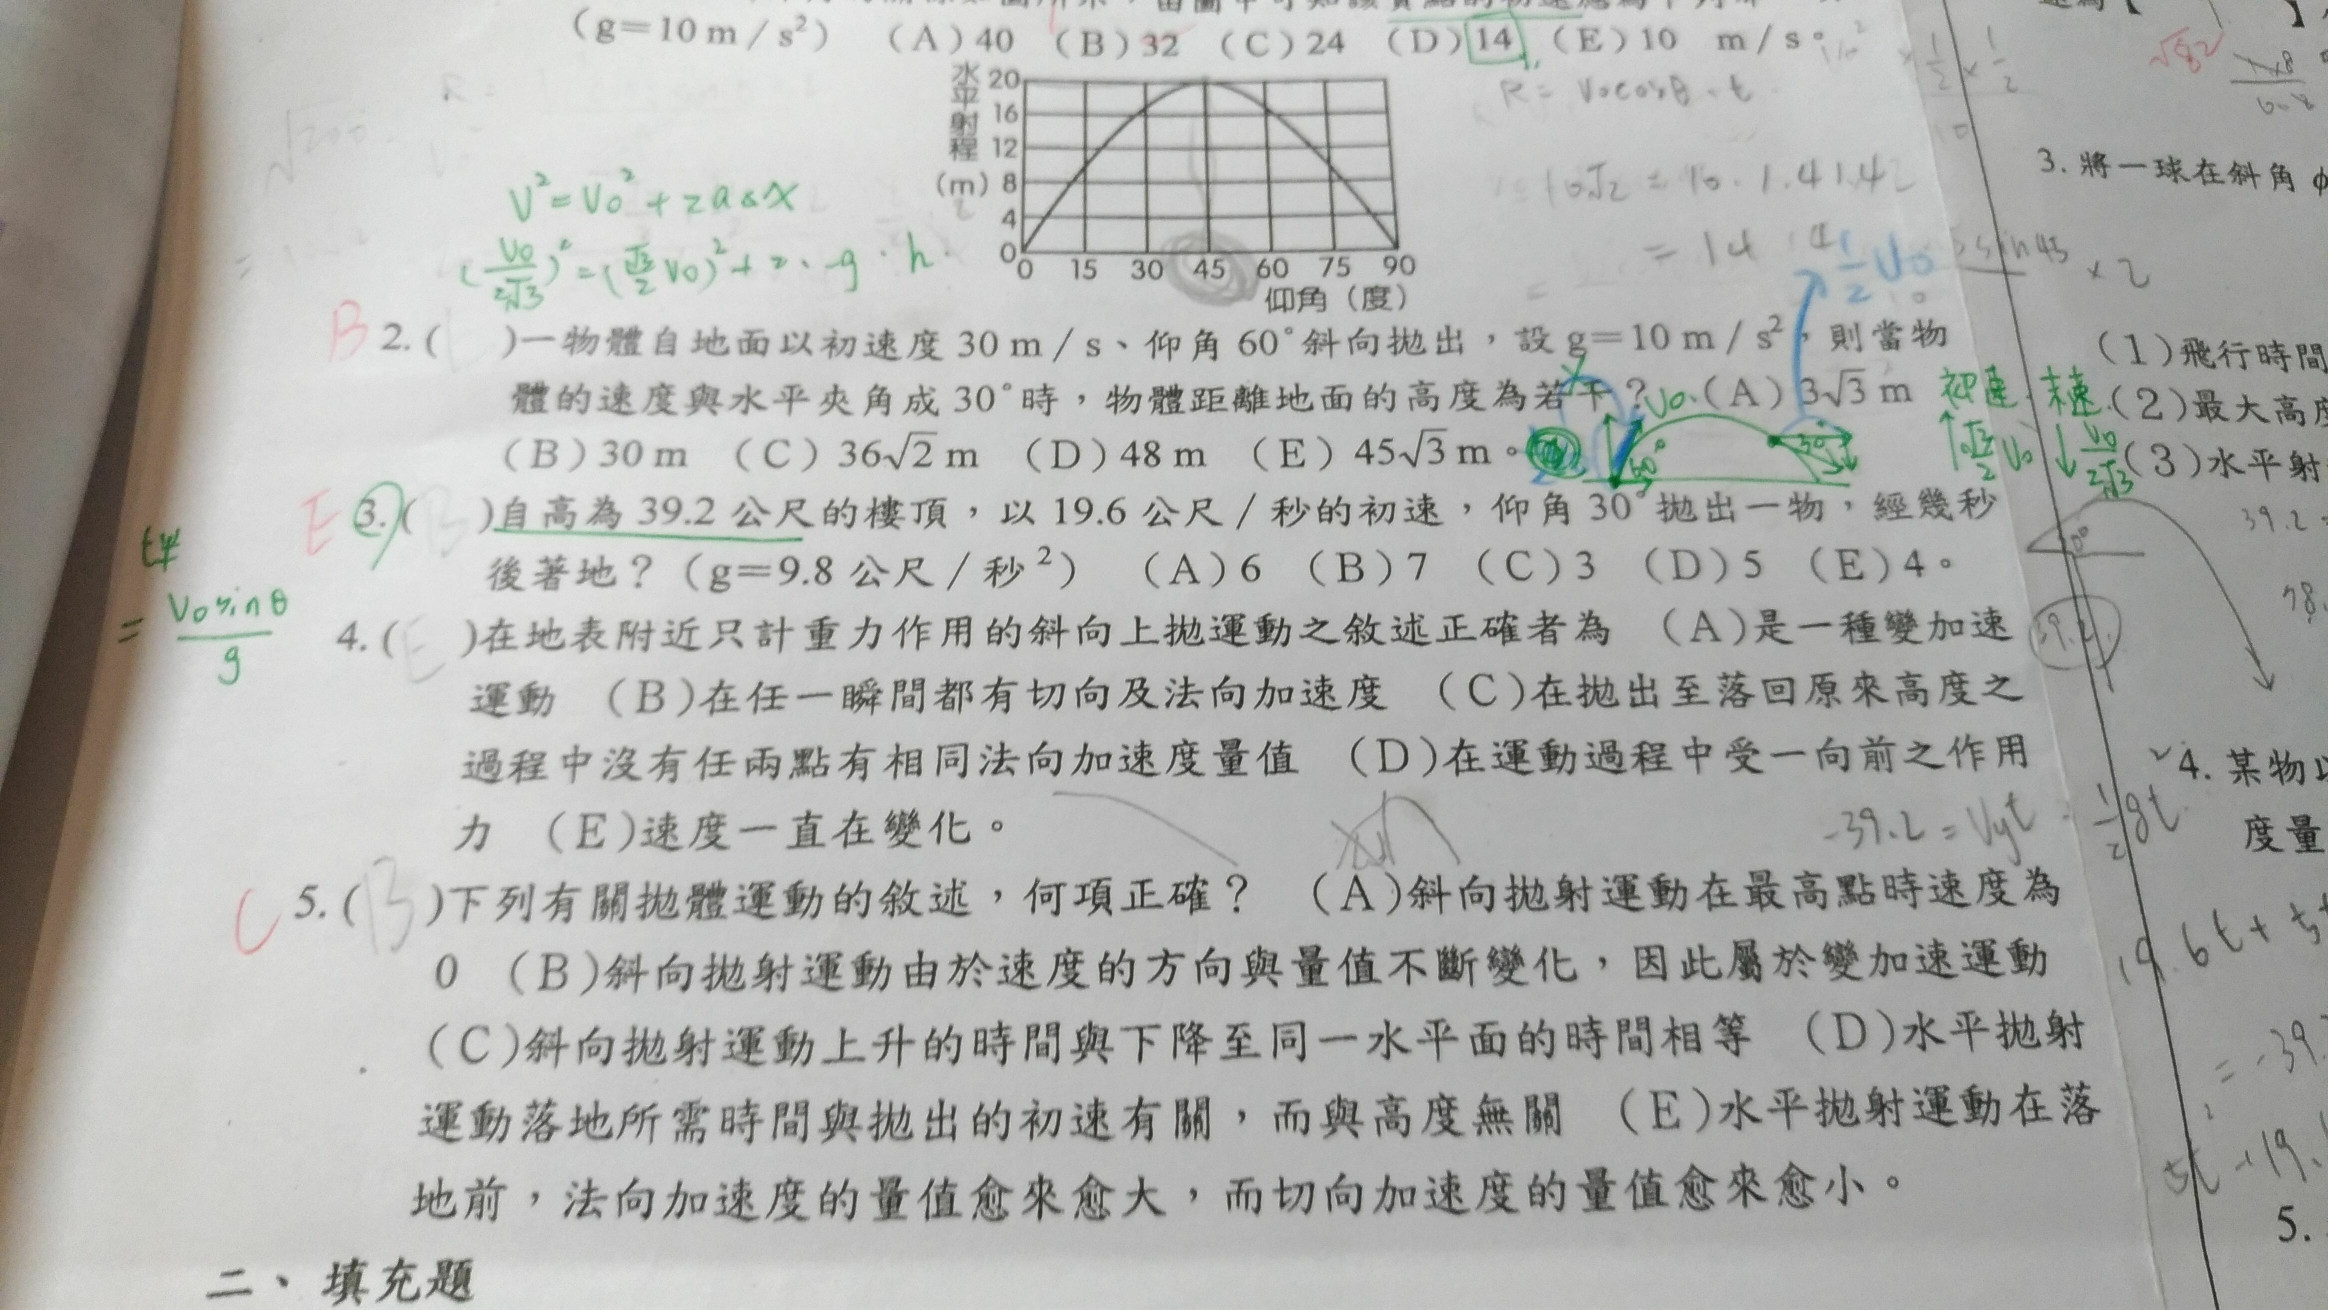 (g=10 m/s²) (A)40 (B)32 (C)24 (D)14 (E)10 m/s。
水平射程(m)
20
16
12
8
4
0
0 15 30 45 60 75 90
仰角(度)
R= V₀cosθ·t
√200
=10√2 = 10·1.4142
= 14
V²=V₀²+2a△X
(V₀/2√3)²=(√3/2 V₀)²+2·-g·h
1/2 V₀
B 2.( )一物體自地面以初速度 30 m/s、仰角 60°斜向拋出,設 g=10 m/s²,則當物
體的速度與水平夾角成 30°時,物體距離地面的高度為若干?(A)3√3 m
(B)30 m (C)36√2 m (D)48 m (E)45√3 m。
V₀
60°
30°
初速 末速
↑√3/2 V₀ ↓V₀/2√3
E 3.(B)自高為 39.2 公尺的樓頂,以 19.6 公尺/秒的初速,仰角 30°拋出一物,經幾秒
後著地?(g=9.8 公尺/秒²) (A)6 (B)7 (C)3 (D)5 (E)4。
t半
= V₀sinθ/g
4.(E)在地表附近只計重力作用的斜向上拋運動之敘述正確者為 (A)是一種變加速
運動 (B)在任一瞬間都有切向及法向加速度 (C)在拋出至落回原來高度之
過程中沒有任兩點有相同法向加速度量值 (D)在運動過程中受一向前之作用
力 (E)速度一直在變化。
-39.2 = Vyt - 1/2 gt
C 5.(B)下列有關拋體運動的敘述,何項正確? (A)斜向拋射運動在最高點時速度為
0 (B)斜向拋射運動由於速度的方向與量值不斷變化,因此屬於變加速運動
(C)斜向拋射運動上升的時間與下降至同一水平面的時間相等 (D)水平拋射
運動落地所需時間與拋出的初速有關,而與高度無關 (E)水平拋射運動在落
地前,法向加速度的量值愈來愈大,而切向加速度的量值愈來愈小。
二、填充題
3.將一球在斜角
(1)飛行時間
(2)最大高度
(3)水平射
39.2
4.某物以
度量
5.